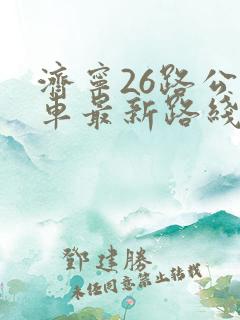 濟寧26路公
車最新路綫
鄧建勝
未经同意禁止转载